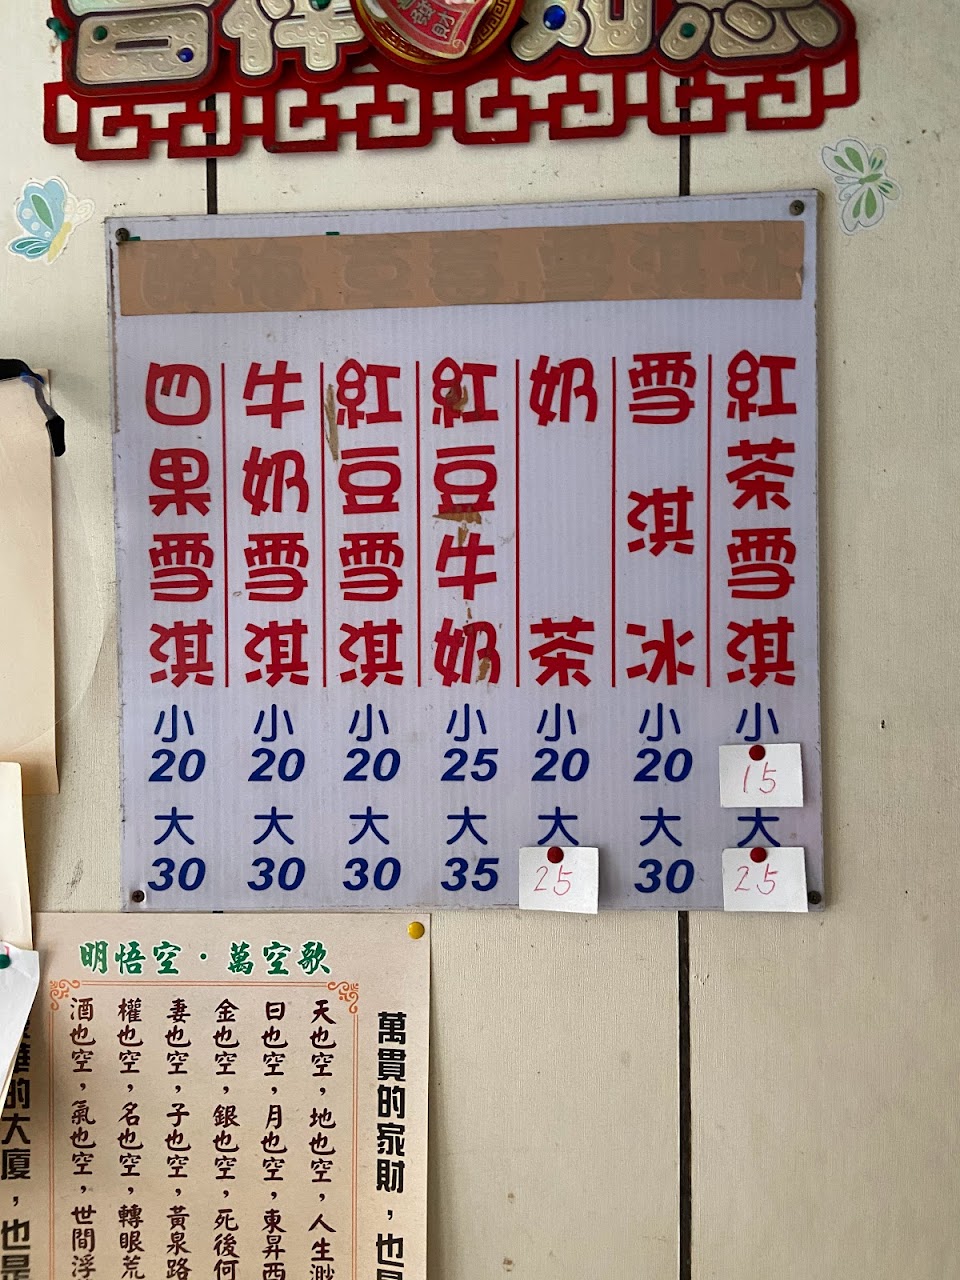 吉祥如意
發財
紅茶雪淇
小
15
大
25
雪淇冰
小
20
大
30
奶茶
小
20
大
25
紅豆牛奶
小
25
大
35
紅豆雪淇
小
20
大
30
牛奶雪淇
小
20
大
30
四果雪淇
小
20
大
30
明悟空·萬空歌
萬貫的家財，也
天也空，地也空，人生渺
日也空，月也空，東昇西
金也空，銀也空，死後何
妻也空，子也空，黃泉路
權也空，名也空，轉眼荒
酒也空，氣也空，世間浮
華的大廈，也是